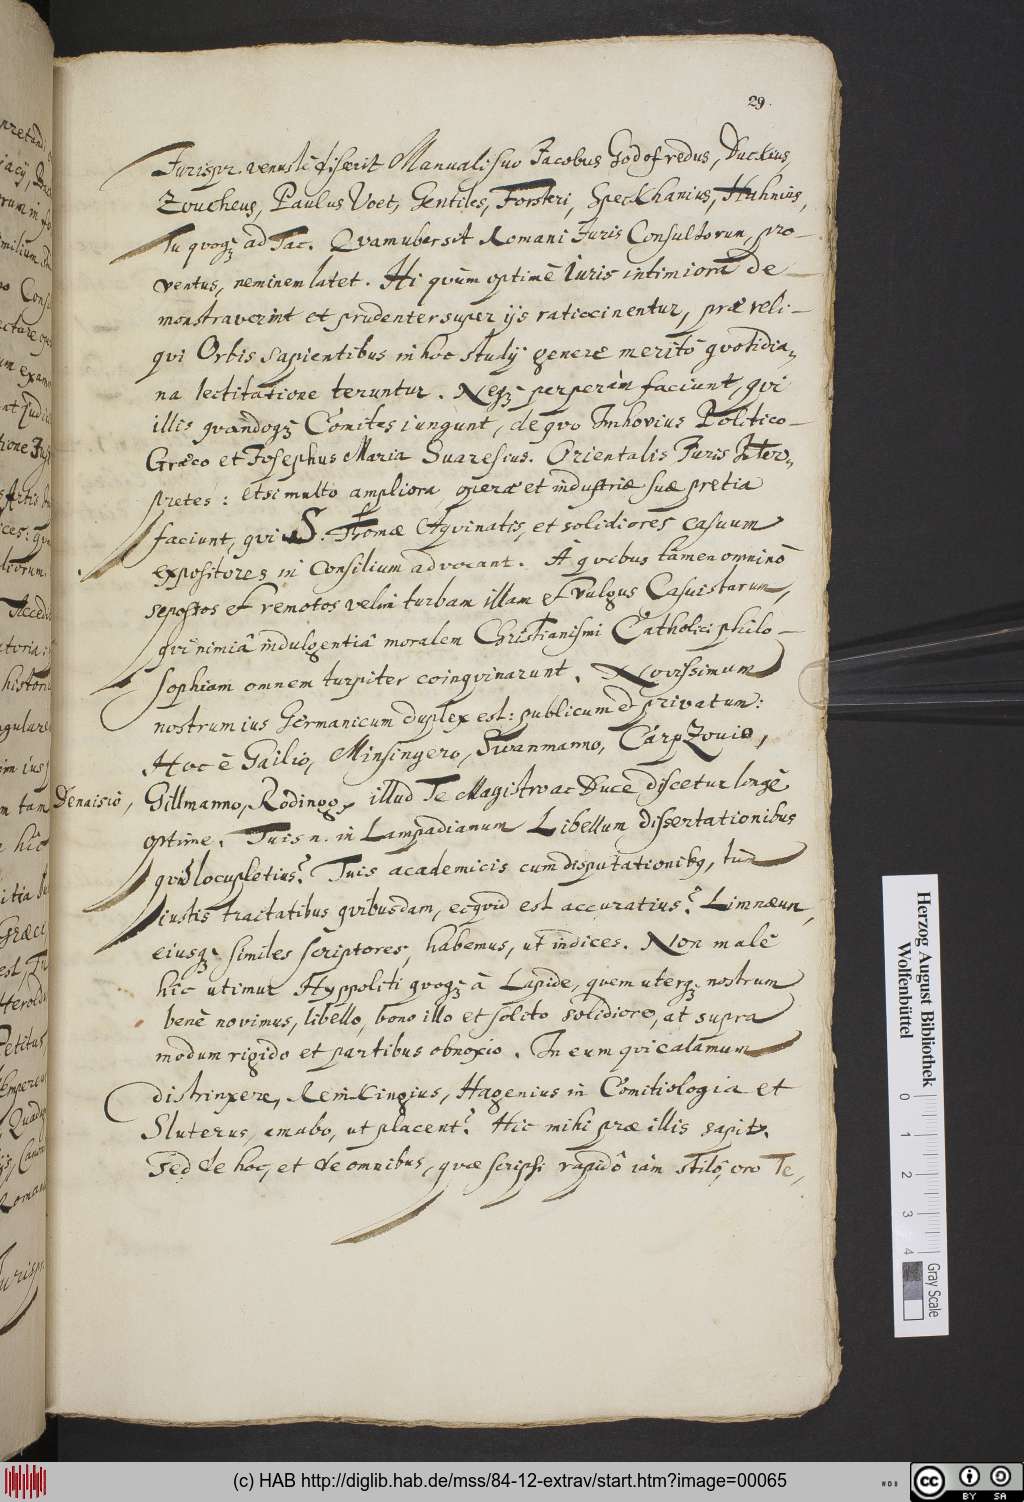 29.
Jurispr. venustè disserit Manuali suo Jacobus Godofredus, Duckius,
Zoucheus, Paulus Voet, Gentiles, Forsteri, Speckhanius, Hahnius,
Tu qvogꝫ ad Tac. Qvam uber sit Romani Juris Consultorum, pro-
ventus, neminem latet. Hi qvùm optimè Iuris intimiora de-
monstraverint et prudenter super ijs ratiocinentur, præ reli-
qvi Orbis sapientibus in hoc studij genere meritò qvotidia„
na lectitatione teruntur. Neqꝫ perperàm faciunt, qvi
illis qvandoqꝫ Comites iungunt, de qvo Imhovius Politico-
Græco et Josephus Maria Suaresius. Orientalis Juris Inter„
pretes: etsi multo ampliora operæ et industriæ suæ pretia
faciunt, qvi S. Thomæ Aqvinatis, et solidiores casuum
expositores in Consilium advocant. A qvibus tamen omninò
sepostos et remotos velim turbam illam et vulgus Casuistarum,
qvi nimiâ indulgentiâ moralem Christianismi Catholici philo-
sophiam omnem turpiter coinqvinarunt. Novissimum
nostrum ius Germanicum duplex est: publicum et privatum:
Hoc è Gailio, Minsingero, Swanmanno, CarpZovio,
Denaisio, Gillmanno, Rodingoqꝫ, illud Te Magistro ac Duce discetur longè
optime. Tuis n. in Lampadianum Libellum dissertationibus
qvid locupletius? Tuis academicis cum disputationibꝫ, tum
iustis tractatibus qvibusdam, ecqvid est accuratius? Limnæum,
eiusqꝫ similes scriptores, habemus, ut indices. Non malè
hic utimur Hyppoliti qvoqꝫ à Lapide, quem uterqꝫ nostrum
benè novimus, libello, bono illo et solito solidiore, at supra
modum rigido et partibus obnoxio. In eum qvi calamum
distrinxere, Reinkingius, Hagenius in Comitiologia et
Sluterus, amabo, ut placent? Hic mihi præ illis sapit.
Sed de hoc, et de omnibus, qvæ scripsi rapidô iàm stilô, oro Te,
Herzog August Bibliothek
Wolfenbüttel
0 1 2 3 4
Gray Scale
(c) HAB http://diglib.hab.de/mss/84-12-extrav/start.htm?image=00065
cc BY SA